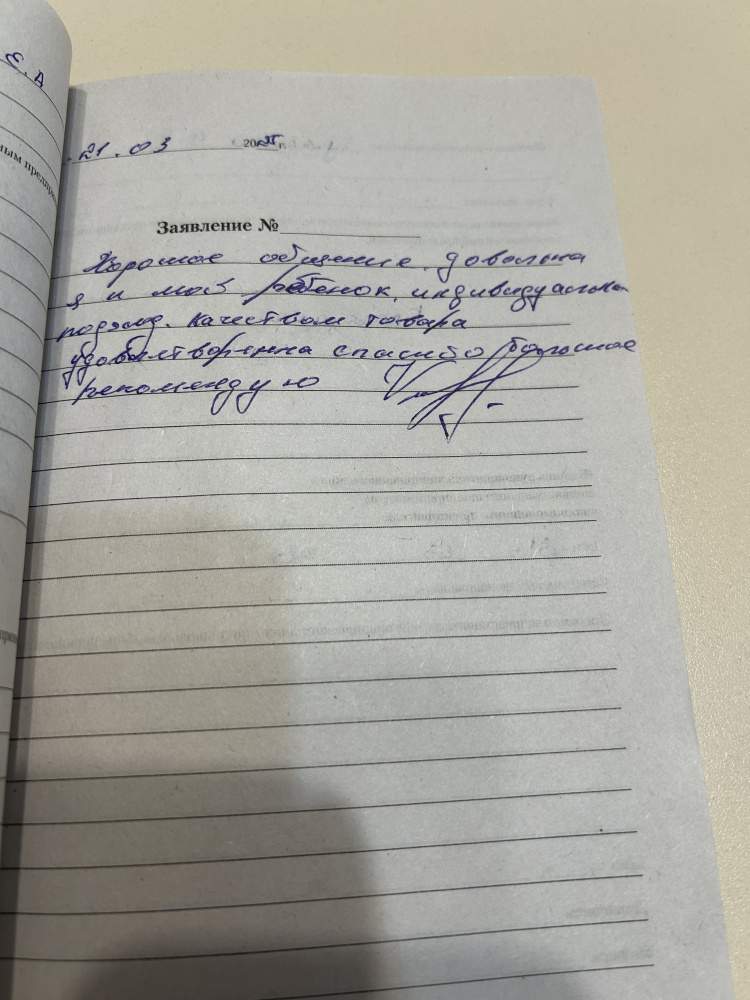 Е.А
ным предпри
21.03 2025 г.
Заявление №
Хорошое общение, довольна
я и мой ребёнок, индивидуальны
подход. Качеством товара
удовлетворенна спасибо большое
рекомендую